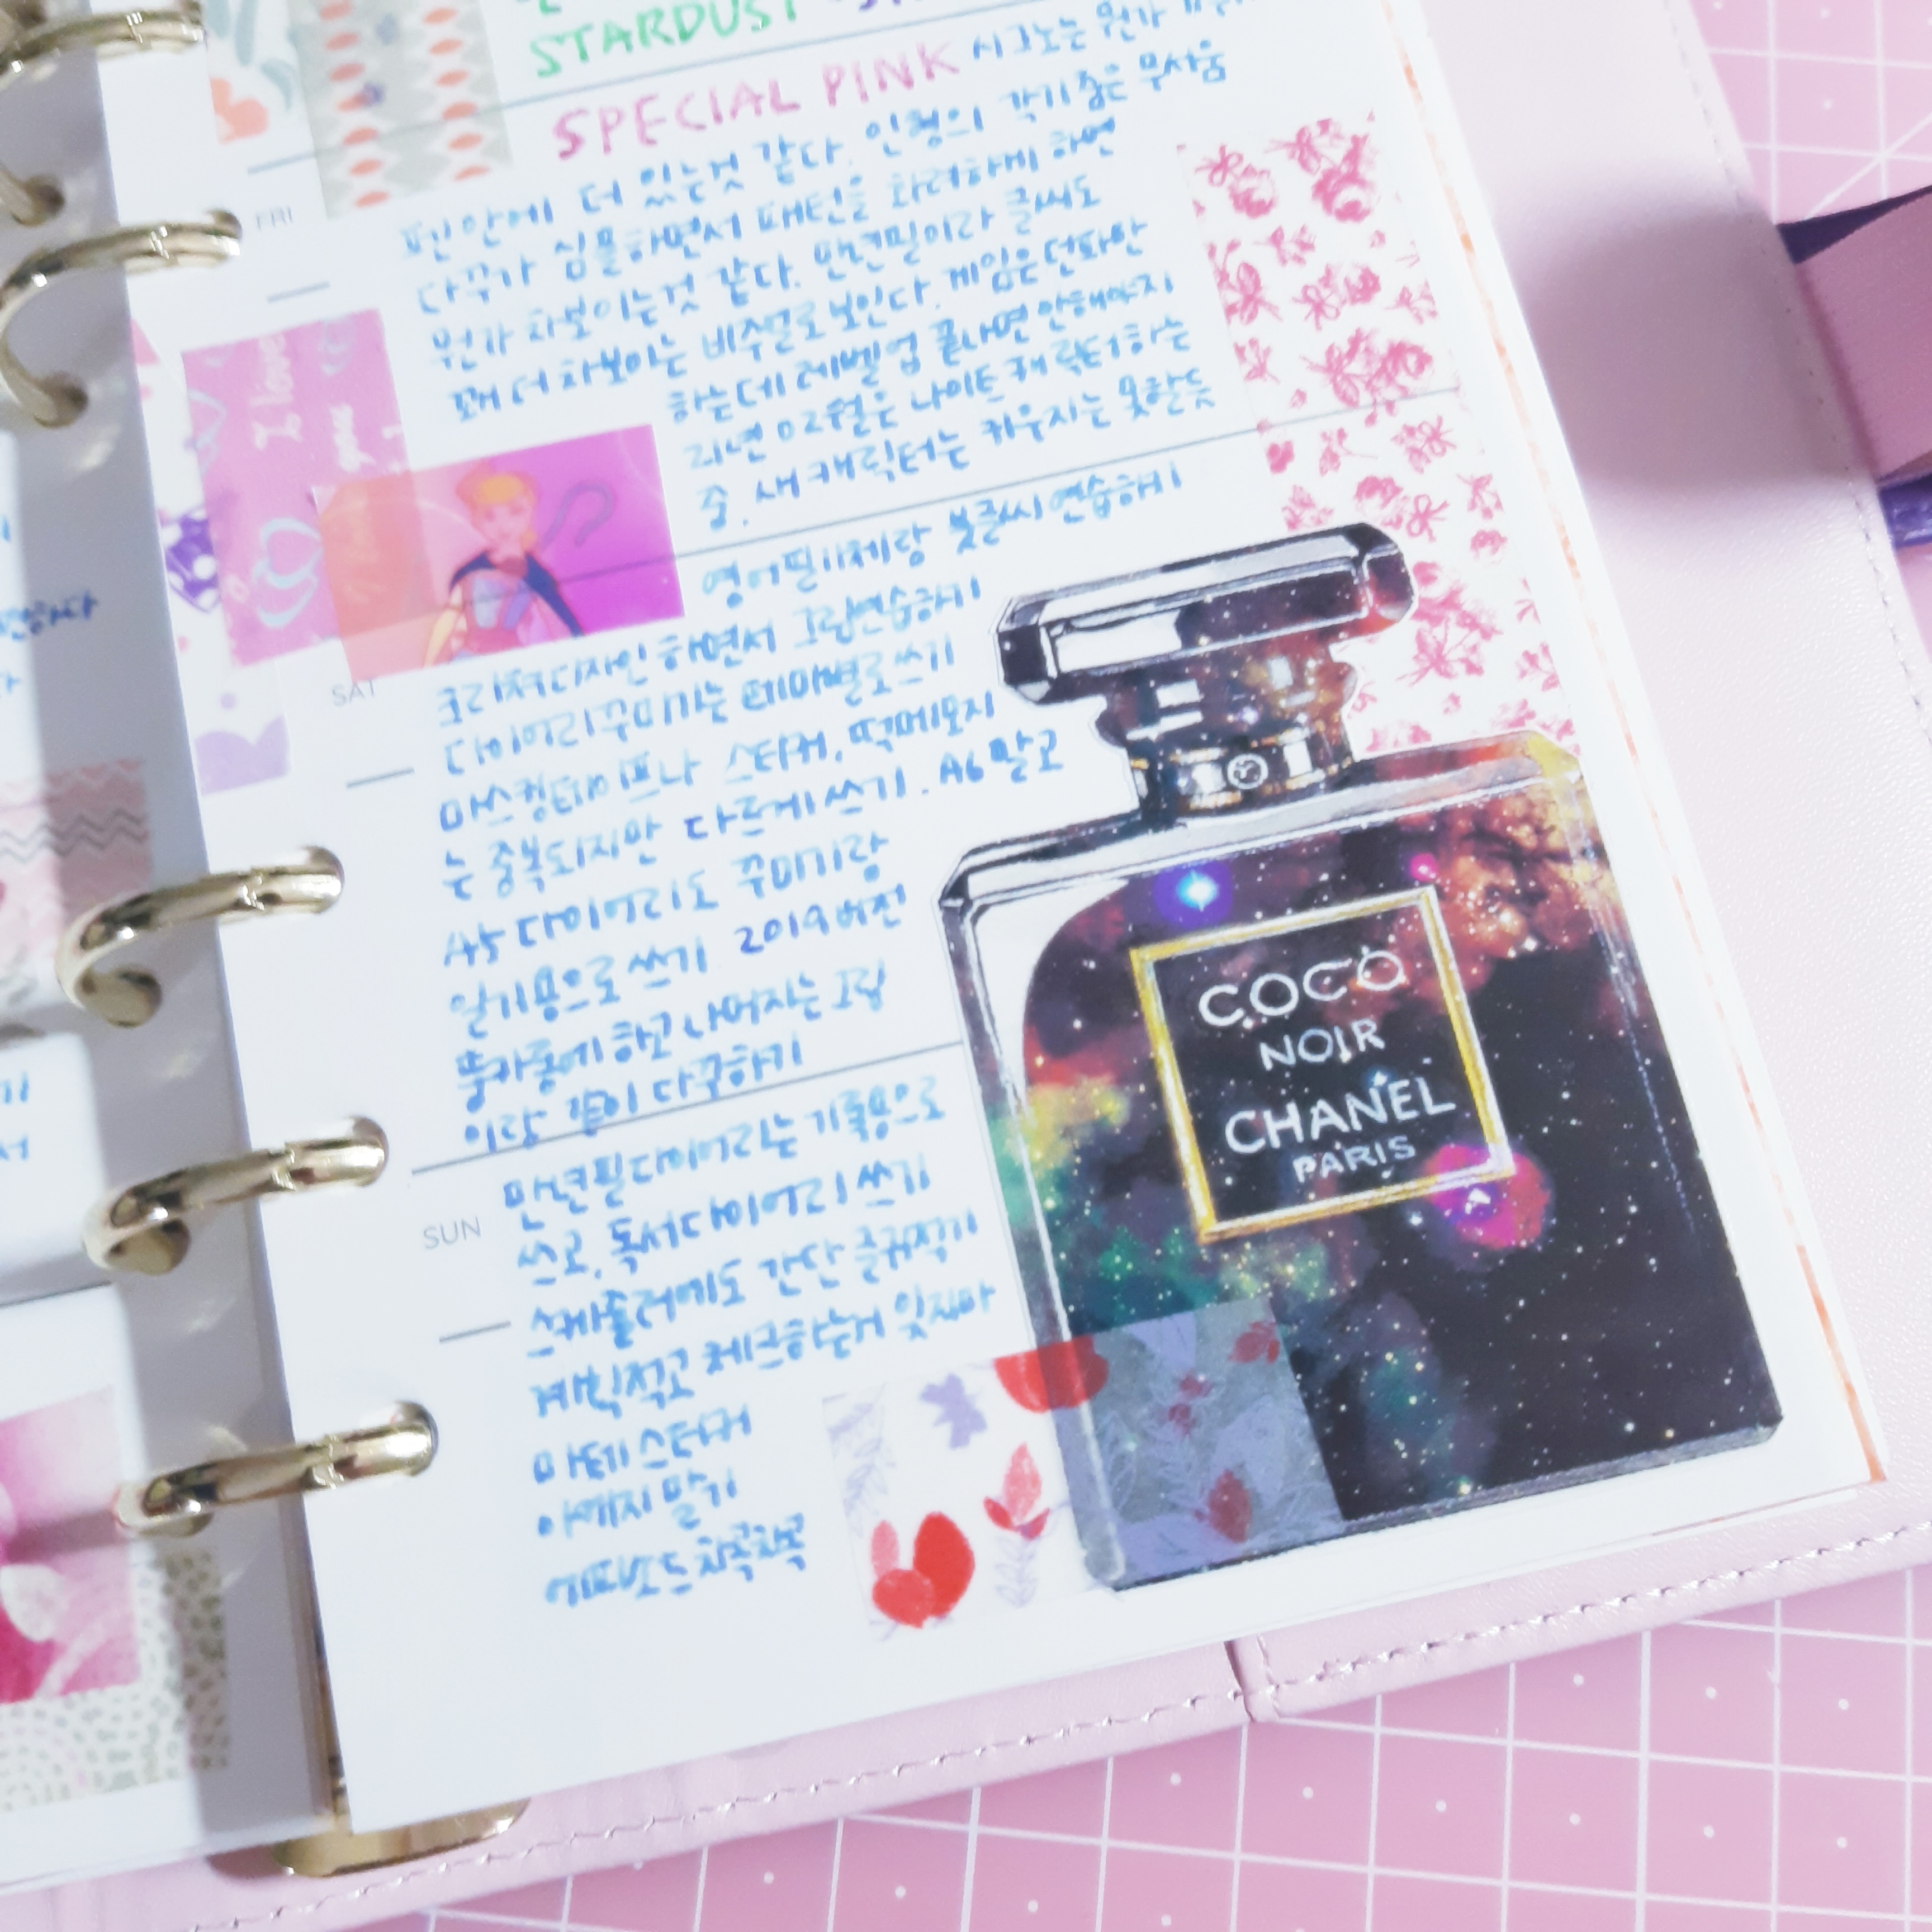 STARDUST
SPECIAL PINK 시그노는 뭔가
펜안에 더 있는것 같다. 인형의 각기춤은 무서움
FRI
다꾸가 심플하면서 패턴을 화려하게 하면
뭔가 차보이는것 같다. 만년필이라 글씨도
꽤 더 차보이는 비주얼로 보인다. 게임은 던파만
하는데 레벨업 끝나면 안해야지
21년 02월은 나이트 캐릭터하는
중. 새캐릭터는 키우지는 못할듯
I love
you
영어필기체랑 붓글씨 연습하기
SAT
크리쳐디자인 하면서 그림연습하기
다이어리꾸미기는 테마별로 쓰기
마스킹테이프나 스티커, 떡메모지
는 중복되지만 다르게 쓰기. A6 말고
A5 다이어리도 꾸미기랑
일기용으로 쓰기 2019버전
하고 나머지는 그림
이랑 같이 다꾸하기
SUN
만년필다이어리는 기록용으로
쓰고, 독서다이어리 쓰기
스케줄러에도 간단 적기
계획적고 체크하는거 잊지마
마테 스티커
아끼지 말기
차곡차곡
COCO
NOIR
CHANEL
PARIS